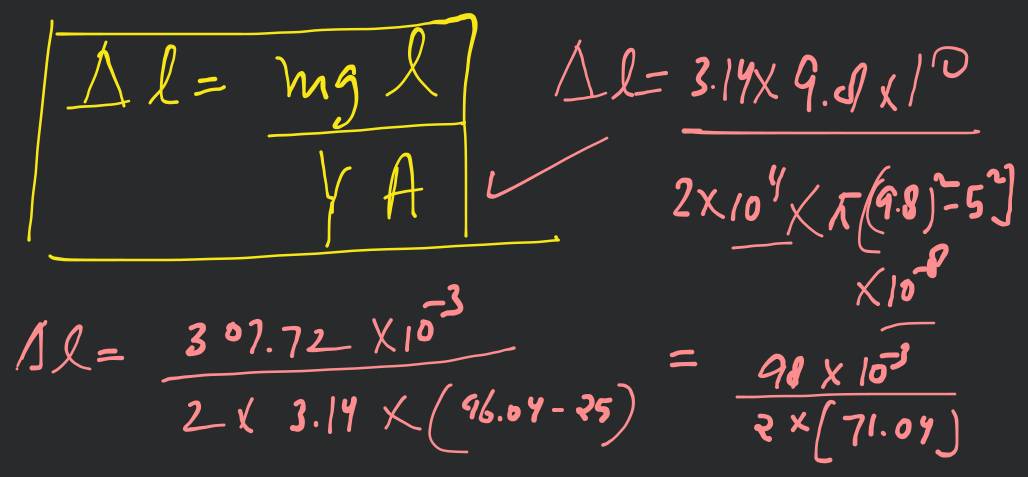 Δl = mgl / YA
Δl = 3.14 × 9.8 × 10 / 2×10⁴ × π[(9.8)² - 5²] × 10⁻⁸
Δl = 307.72 × 10⁻³ / 2 × 3.14 × (96.04 - 25) = 98 × 10⁻³ / 2 × [71.04]